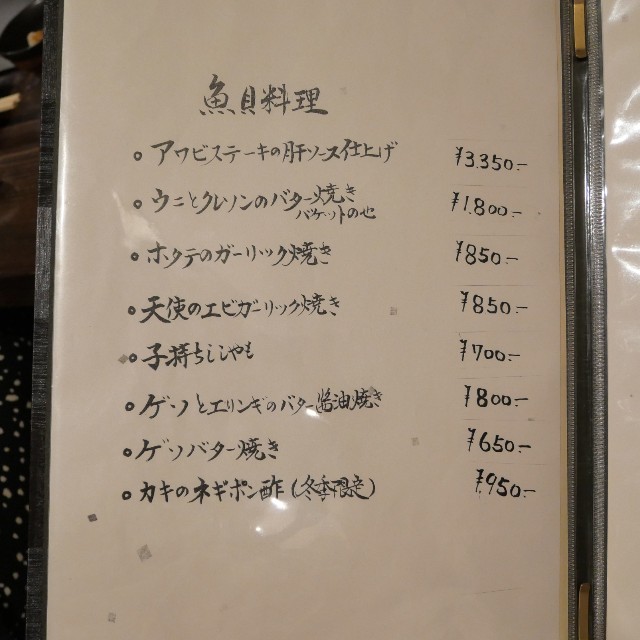 魚貝料理
• アワビステーキの肝ソース仕上げ ¥3.350.-
• ウニとクレソンのバター焼き ¥1.800.-
バケットの也
• ホタテのガーリック焼き ¥850.-
• 天使のエビガーリック焼き ¥850.-
• 子持ちししゃも ¥700.-
• ゲソとエリンギのバター醤油焼き ¥800.-
• ゲソバター焼き ¥650.-
• カキのネギポン酢(冬季限定) ¥950.-